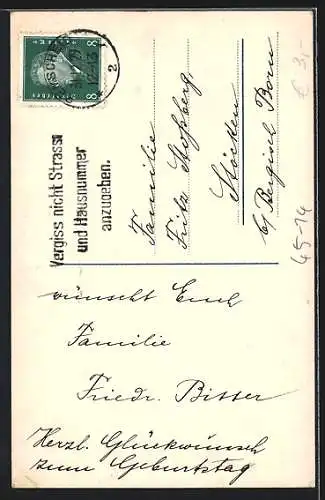 8 8
2
Vergiss nicht Strasse
und Hausnummer
anzugeben.
Familie
Fritz Stoßberg
Stöcken
b/ Bergisch Born
€ 3,-
45-14
wünscht Euch
Familie
Friedr. Bitter
Herzl. Glückwünsch
zum Geburtstag